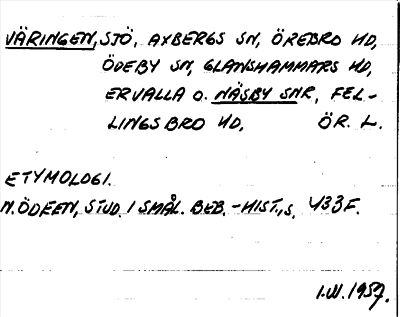 VÄRINGEN, SJÖ, AXBERGS SN, ÖREBRO HD,
ÖDEBY SN, GLANSHAMMARS HD,
ERVALLA O. NÄSBY SNR, FEL-
LINGSBRO HD, ÖR. L.
ETYMOLOGI.
N. ÖDEEN, STUD. I SMÅL. BEB.-HIST., S. 433F.
I.W. 1957.